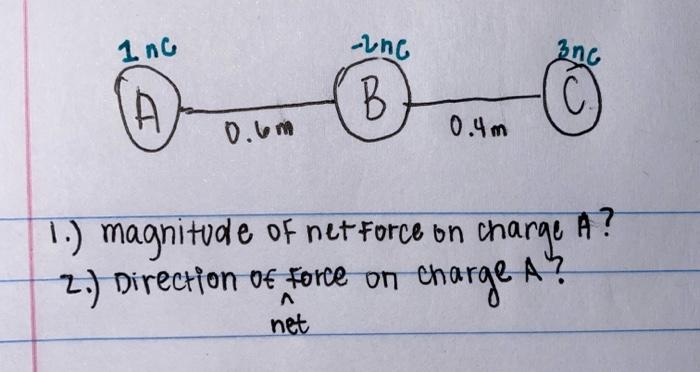 1 nC -2nC 3nC
A B C
0.6m 0.4m
1.) magnitude of net force on charge A?
2.) Direction of force on charge A?
^
net